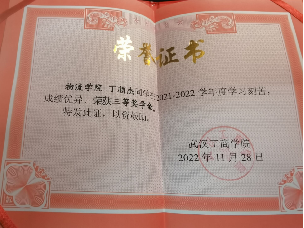 荣誉证书
物流学院 丁 同学在2021-2022 学年度学习刻苦,
成绩优异,荣获三等奖学金。
特发此证,以资鼓励。
武汉工商学院
2022 年 11 月 28 日